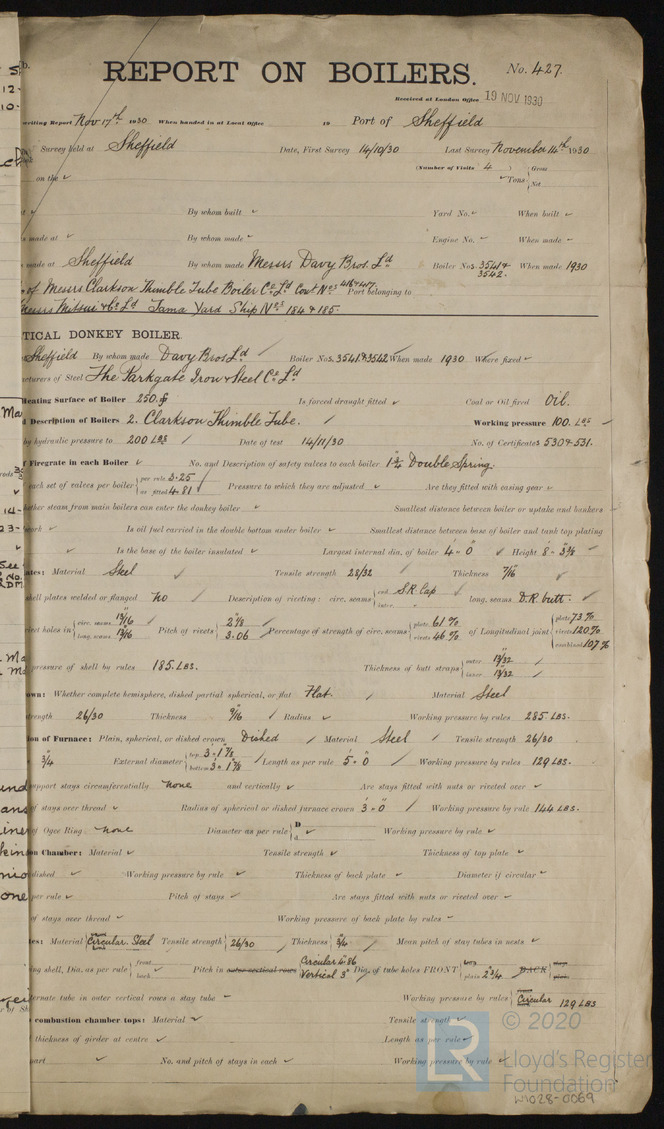 REPORT ON BOILERS. No. 427.
Received at London Office 19 NOV 1930
writing Report Nov 17th 1930 When handed in at Local Office 19 Port of Sheffield
Survey held at Sheffield Date, First Survey 14/10/30 Last Survey November 14th 1930
(Number of Visits 4)
on the ✓ ✓ Tons { Gross Net
✓ By whom built ✓ Yard No. ✓ When built ✓
made at ✓ By whom made ✓ Engine No. ✓ When made ✓
made at Sheffield By whom made Messrs Davy Bros. Ld Boiler Nos. 3541 & 3542. When made 1930
of Messrs Clarkson Thimble Tube Boiler Co. Ld Cont Nos 416 & 417. Port belonging to
Messrs Mitsui & Co Ld Tama Yard Ship Nos 184 & 185.
TICAL DONKEY BOILER.
Sheffield By whom made Davy Bros Ld Boiler Nos. 3541 & 3542 When made 1930 Where fixed ✓
cturers of Steel The Parkgate Iron & Steel Co. Ld
Heating Surface of Boiler 250. Is forced draught fitted ✓ Coal or Oil fired Oil.
Description of Boilers 2. Clarkson Thimble Tube. Working pressure 100. Lbs
by hydraulic pressure to 200 Lbs Date of test 14/11/30 No. of Certificates 530 & 531.
Firegrate in each Boiler ✓ No. and Description of safety valves to each boiler 1¾ Double Spring.
each set of valves per boiler { per rule 3.25 as fitted 4.81 Pressure to which they are adjusted ✓ Are they fitted with easing gear ✓
ether steam from main boilers can enter the donkey boiler ✓ Smallest distance between boiler or uptake and bunkers
work ✓ Is oil fuel carried in the double bottom under boiler ✓ Smallest distance between base of boiler and tank top plating
✓ Is the base of the boiler insulated ✓ Largest internal dia. of boiler 4'-0" Height 8'-3⅜"
ates: Material Steel Tensile strength 28/32 Thickness 7/16
shell plates welded or flanged No Description of riveting: circ. seams { end S.R. Lap inter. long. seams D.R. butt.
rivet holes in { circ. seams 13/16 long. seams 13/16 Pitch of rivets { 2⅛ 3.06 Percentage of strength of circ. seams { plate 61% rivets 46% of Longitudinal joint { plate 73% rivets 120% combined 107%
pressure of shell by rules 185. Lbs. Thickness of butt straps { outer 13/32 inner 13/32
own: Whether complete hemisphere, dished partial spherical, or flat Flat Material Steel
trength 26/30 Thickness 9/16 Radius ✓ Working pressure by rules 285 Lbs.
ion of Furnace: Plain, spherical, or dished crown Dished Material Steel Tensile strength 26/30
3/4 External diameter { top 3'-1⅞ bottom 3'-1⅞ Length as per rule 5'-0" Working pressure by rules 129 Lbs.
support stays circumferentially None and vertically ✓ Are stays fitted with nuts or riveted over ✓
of stays over thread ✓ Radius of spherical or dished furnace crown 3'-0" Working pressure by rule 144 Lbs.
of Ogee Ring None Diameter as per rule { D d ✓ Working pressure by rule ✓
on Chamber: Material ✓ Tensile strength ✓ Thickness of top plate ✓
dished ✓ Working pressure by rule ✓ Thickness of back plate ✓ Diameter if circular ✓
per rule ✓ Pitch of stays ✓ Are stays fitted with nuts or riveted over ✓
of stays over thread ✓ Working pressure of back plate by rules ✓
tes: Material { Circular Steel Tensile strength { 26/30 Thickness { 3/4 Mean pitch of stay tubes in nests ✓
ing shell, Dia. as per rule { front back ✓ Pitch in outer vertical rows Circular 4.86 Vertical 3" Dia. of tube holes FRONT { stay plain 2¾ BACK { stay plain
ternate tube in outer vertical rows a stay tube – Working pressure by rules { Circular 129 Lbs
combustion chamber tops: Material ✓ Tensile strength ✓
thickness of girder at centre ✓ Length as per rule ✓
part ✓ No. and pitch of stays in each ✓ Working pressure by rule ✓
© 2020
Lloyd's Register
Foundation
W1028-0069